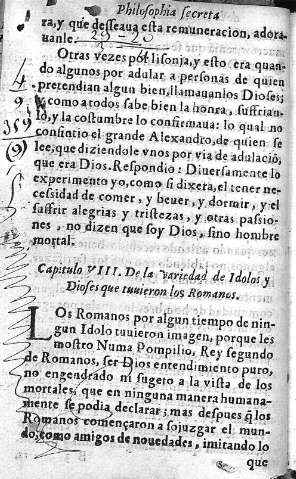 Philosophia secreta
ra, y que desseaua esta remuneracion, adora
uanle.
Otras vezes por lisonja, y esto era quan-
do algunos por adular a personas de quien
pretendian algun bien, llamauanlos Dioses;
y como a todos sabe bien la honra, suffrian-
lo, y la costumbre lo confirmaua: lo qual no
consintio el grande Alexandro, de quien se
lee, que diziendole vnos por via de adulaciõ,
que era Dios. Respondio: Diuersamente lo
experimento yo, como si dixera, el tener ne-
cessidad de comer, y beuer, y dormir, y el
suffrir alegrias y tristezas, y otras passio-
nes, no dizen que soy Dios, sino hombre
mortal.
4
9
359
(9)
Capitulo VIII. De la variedad de Idolos y
Dioses que tuuieron los Romanos.
LOs Romanos por algun tiempo de nin-
gun Idolo tuuieron imagen, porque les
mostro Numa Pompilio, Rey segundo
de Romanos, ser Dios entendimiento puro,
no engendrado ni sugeto a la vista de los
mortales, que en ninguna manera humana-
mente se podia declarar; mas despues q̃ los
Romanos començaron a sojuzgar el mun-
do, como amigos de nouedades, imitando lo
que